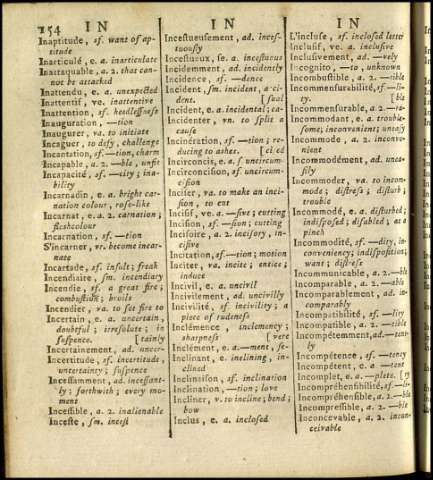 254 IN IN IN
Inaptitude, sf. want of ap-
titude
Inarticulé, e. a. inarticulate
Inattaquable, a. 2. that can-
not be attacked
Inattendu, e. a. unexpected
Inattentif, ve. inattentive
Inattention, sf. heedlessness
Inauguration, —tion
Inaugurer, va. to initiate
Incaguer, to defy, challenge
Incantation, sf. —tion, charm
Incapable, a. 2. —ble, unfit
Incapacité, sf. —city; ina-
bility
Incarnadin, e. a. bright car-
nation colour, rose-like
Incarnat, e. a. 2. carnation;
fleshcolour
Incarnation, sf. —tion
S'incarner, vr. become incar-
nate
Incartade, sf. insult; freak
Incendiaire, sm. incendiary
Incendie, sf. a great fire;
combustion; broils
Incendier, va. to set fire to
Incertain, e. a. uncertain,
doubtful; irresolute; in
suspence. [tainly
Incertainement, ad. uncer-
Incertitude, sf. incertitude;
uncertainty; suspence
Incessamment, ad. incessant-
ly; forthwith; every mo-
ment
Incessible, a. 2. inalienable
Inceste, sm. incest
Incestueusement, ad. inces-
tuously
Incestueux, se. a. incestuous
Incidemment, ad. incidently
Incidence, sf. —dence
Incident, sm. incident, a ci-
dent. [sual
Incident, e. a. incidental; ca-
Incidenter, vn. to split a
cause
Incinération, sf. —tion; re-
ducing to ashes. [cised
Incirconcis, e. a. f. uncircum-
Incirconcision, sf. uncircum-
cision
Inciser, va. to make an inci-
sion, to cut
Incisif, ve. a. —sive; cutting
Incision, sf. —sion; cutting
Incisoire, a. 2. incisory, in-
cisive
Incitation, sf. —tion; motion
Inciter, va. incite; entice;
induce
Incivil, e. a. uncivil
Incivilement, ad. uncivilly
Incivilité, sf. incivility; a
piece of rudeness
Inclémence, inclemency;
sharpness [vere
Inclément, e. a. —ment, se-
Inclinant, e. inclining, in-
clined
Inclinaison, sf. inclination
Inclination, —tion; love
Incliner, v. to incline; bend;
bow
Inclus, e. a. inclosed
L'incluse, sf. inclosed letter
Inclusif, ve. a. inclusive
Inclusivement, ad. —vely
Incognito, —to, unknown
Incombustible, a. 2. —tible
Incommensurabilité, sf. —li-
ty. [ble
Incommensurable, a. 2. —ra-
Incommodant, e. a. trouble-
some; inconvenient; uneasy
Incommode, a. 2. inconve-
nient
Incommodément, ad. unea-
sily
Incommoder, va. to incom-
mode; distress; disturb;
trouble
Incommodé, e. a. disturbed;
indisposed; disabled; at a
pinch
Incommodité, sf. —dity, in-
conveniency; indisposition;
want; distress
Incommunicable, a. 2. —ble
Incomparable, a. 2. —able
Incomparablement, ad. in-
comparably
Incompatibilité, sf. —lity
Incompatible, a. 2. —tible
Incompétemment, ad. —tent-
ly
Incompétence, sf. —tency
Incompétent, e. a. —tent
Incomplet, e. a. —plete. [ty
Incompréhensibilité, sf. —li-
Incompréhensible, a. 2. —ble
Incompressible, a. 2. —ble
Inconcevable, a. 2. incon-
ceivable